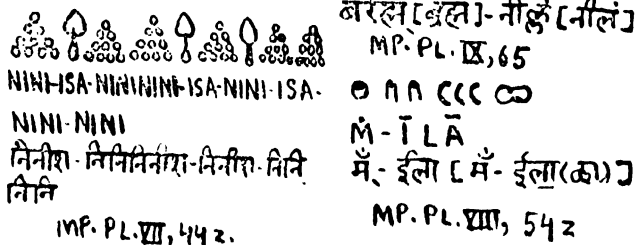 NINI-ISA-NINININI-ISA-NINI-ISA-
NINI-NINI
निनीश - निनिनिनीश - निनीश - निनि
निनि
MP. PL. VII, 44 z.
बरह्म [ब्रह्म] - नील्लं [नीलं]
MP. PL. IX, 65
Ṁ - Ī L Ā
मँ - ईला [मँ - ईला(ळा)]
MP. PL. VIII, 54 z